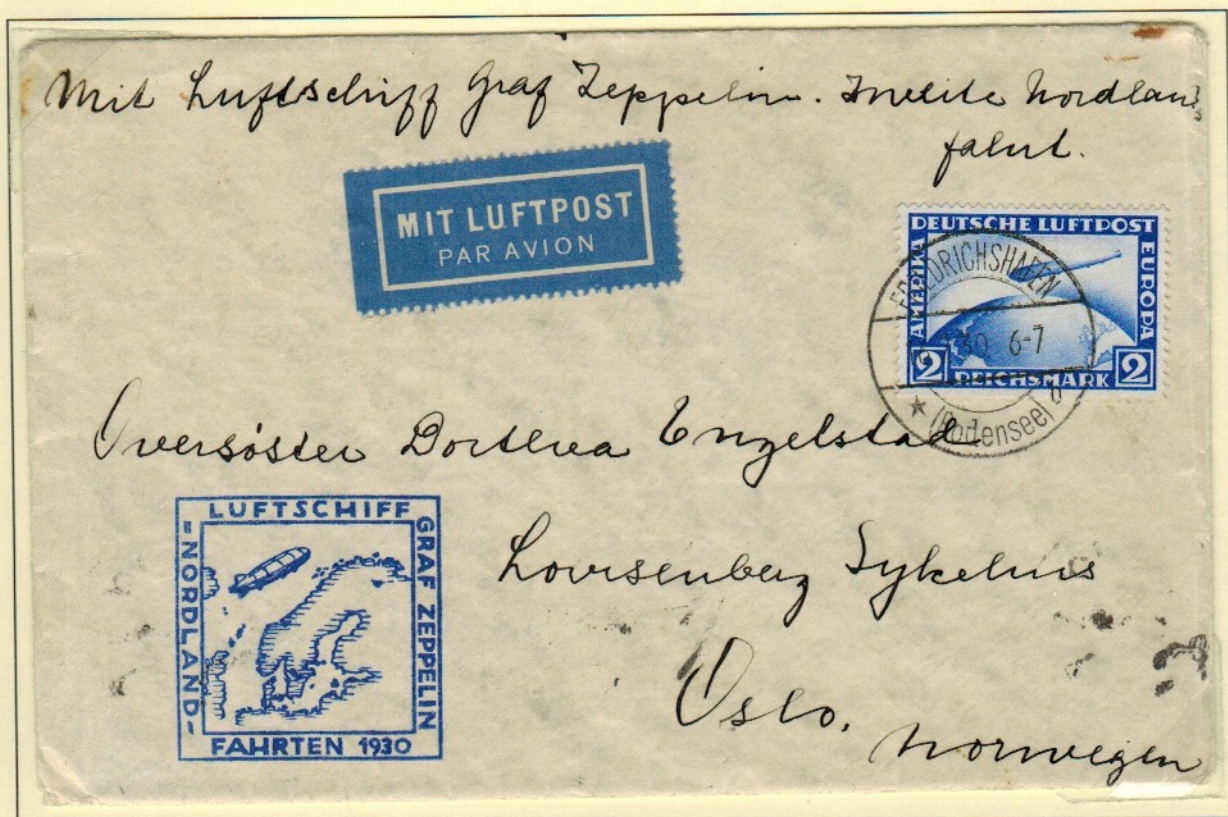 Mit Luftschiff Graf Zeppelin. Zweite Nordland
fahrt.
MIT LUFTPOST
PAR AVION
DEUTSCHE LUFTPOST
AMERIKA
EUROPA
2 REICHSMARK 2
FRIEDRICHSHAFEN
30 6-7
(Bodensee) b
Oversöster Dorthea Engelstad
Lovisenberg Sykehus
Oslo.
Norwegen
LUFTSCHIFF
GRAF ZEPPELIN
-NORDLAND-
FAHRTEN 1930